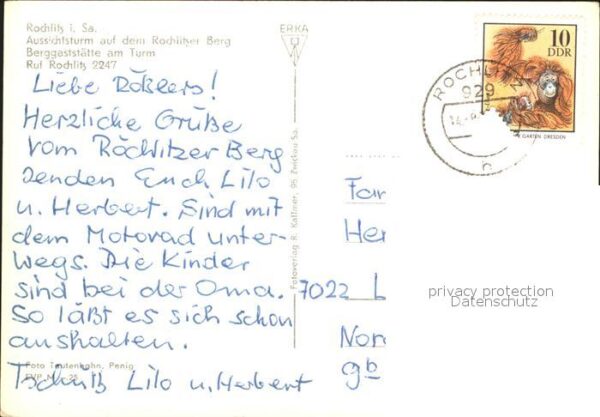 Rochlitz i. Sa.
Aussichtsturm auf dem Rochlitzer Berg
Berggaststätte am Turm
Ruf Rochlitz 2247
Liebe Rößlers!
Herzliche Grüße
vom Rochlitzer Berg
senden Euch Lilo
u. Herbert. Sind mit
dem Motorad unter-
wegs. Die Kinder
sind bei der Oma.
So läßt es sich schon
aushalten.
Foto Teutenhahn, Penig
Tschüß Lilo u. Herbert
ERKA
Fotoverlag R. Kallmer, 95 Zwickau Sa.
10
DDR
GARTEN DRESDEN
ROCHLITZ
929
Fa
He
7022 L
No
gb
privacy protection
Datenschutz